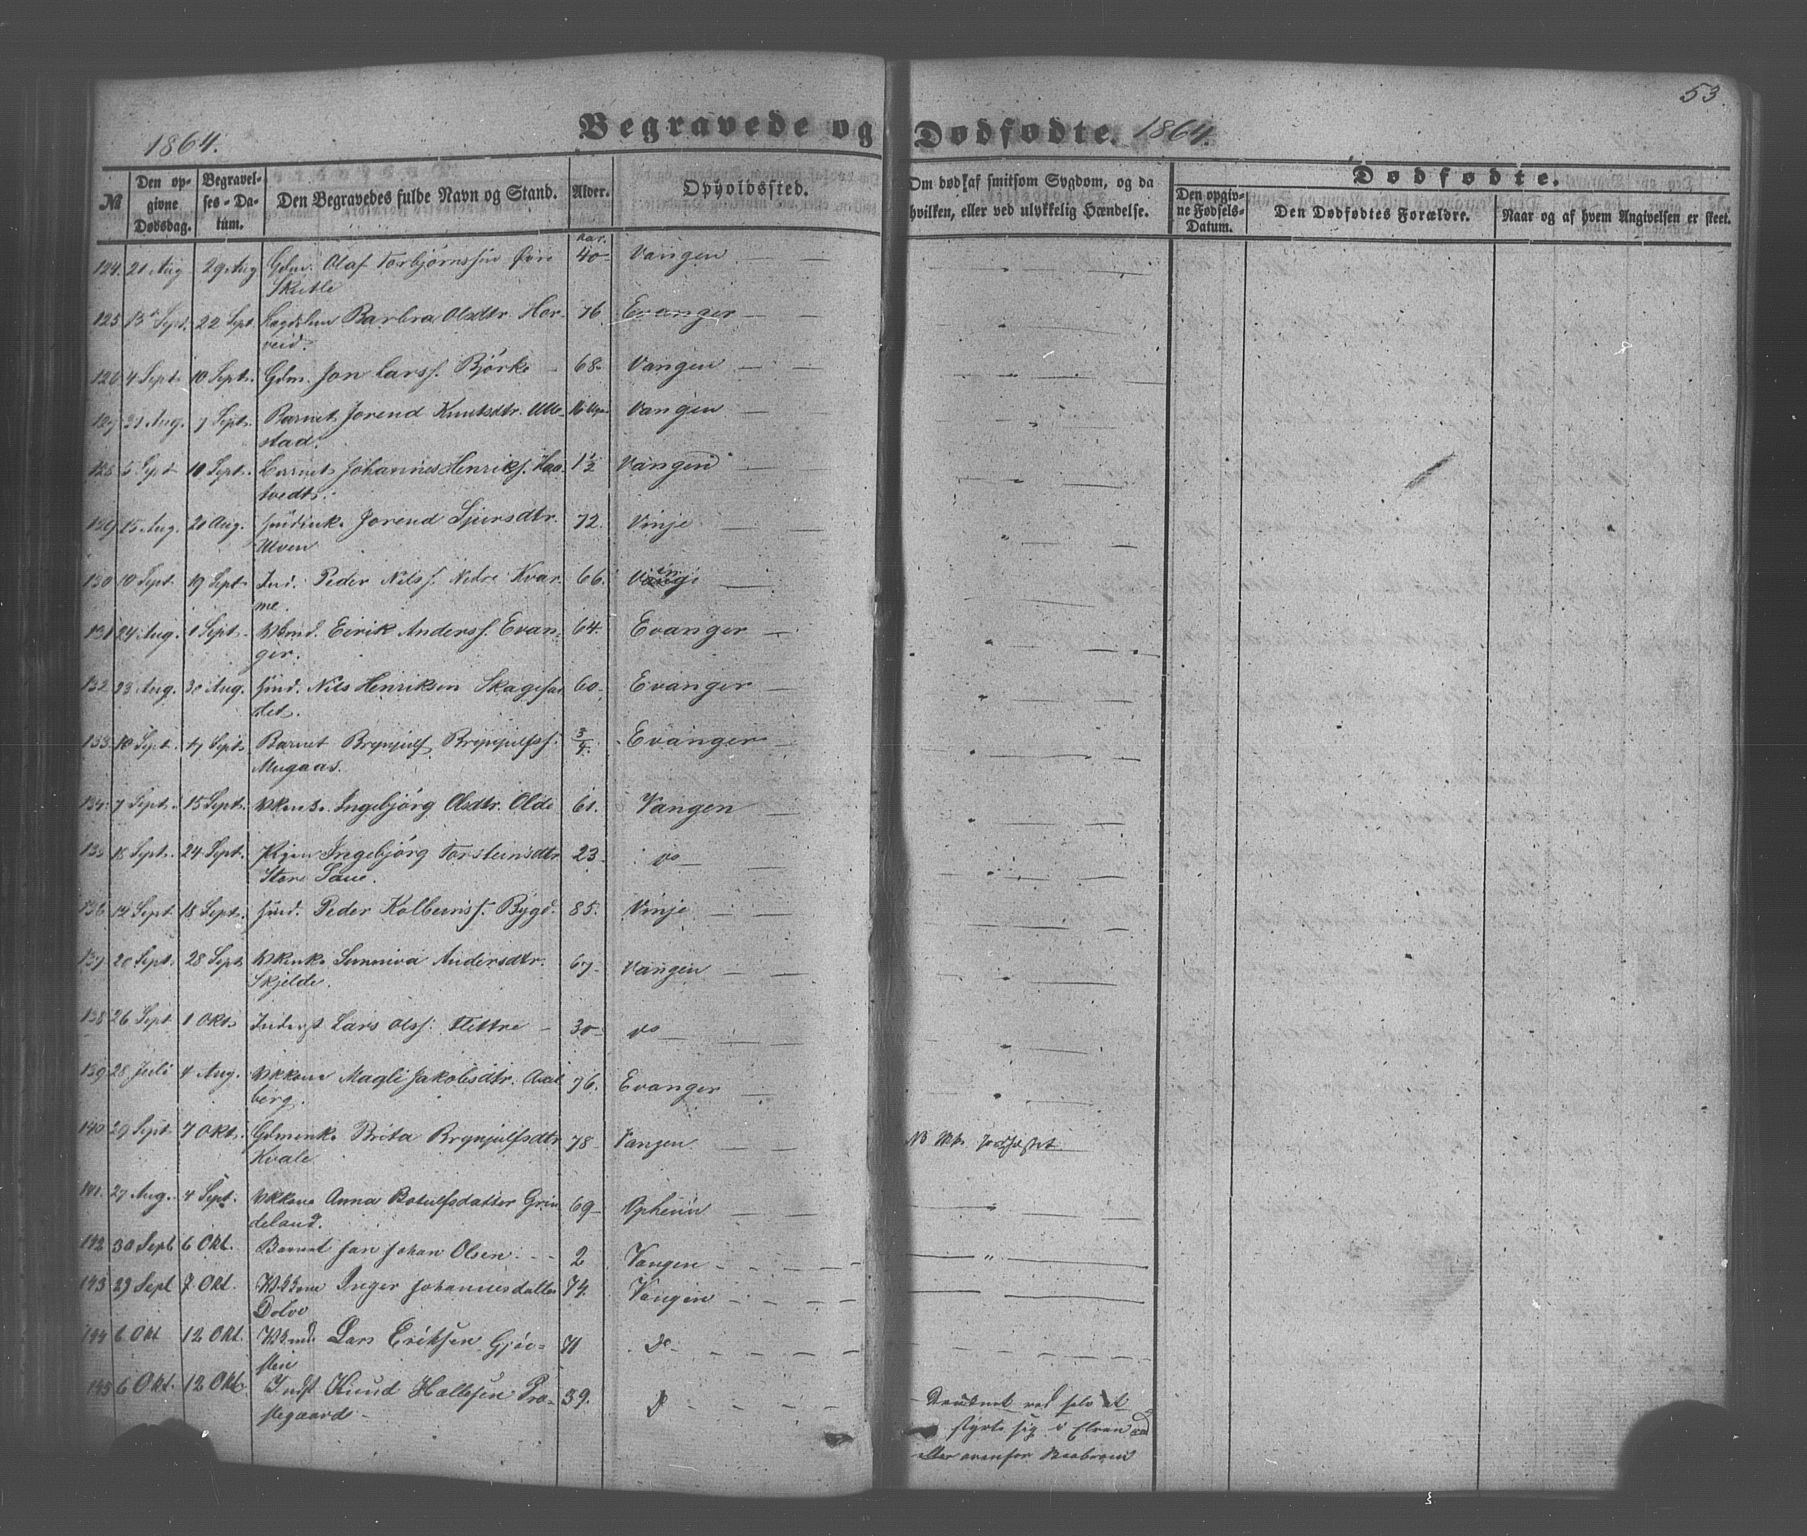 53
1864.
Begravede og Dødfødte. 1864.
№
Den opgivne Dødsdag.
Begravelses-Datum.
Den Begravedes fulde Navn og Stand.
Alder.
Opholdssted.
Om død af smitsom Sygdom, og da hvilken, eller ved ulykkelig Hændelse.
Dødfødte.
Den opgivne Fødsels-Datum.
Den Dødfødtes Forældre.
Naar og af hvem Angivelsen er skeet.
124. 21 Aug 29 Aug Gdm. Olaf Torbjørnssen Øvre 40 Vangen
Skutle
125 13 Sept. 22 Sept. Barbra Olsdtr. Hor- 76. Evanger
veid.
126 4 Sept. 10 Sept. Gdm. Jon Larss. Bjørke 68. Vangen
127 31 Aug. 7 Sept. Barnet Jorend Knutsdtr. Ulle- Vangen
stad.
128 5 Sept 10 Sept. Barnet Johannes Henriks. Haa- 1½ Vangen
tvedt.
129 15 Aug. 20 Aug. Jorend Sjursdtr. 72. Vinje
Ulven
130 10 Sept. 19 Sept. Ind. Peder Nilss. Nedre Kvar- 66. Vinje
me.
131 24 Aug. 1 Sept. Eirik Anderss. Evan- 64. Evanger
ger.
132 23 Aug. 30 Aug. Nils Henriksen Skagesæ- 60. Evanger
det.
133 10 Sept. 17 Sept. Barnet Brynjulf Brynjulfss. ¾. Evanger
Mugaas.
134. 7 Sept. 15 Sept. Ingebjørg Olsdtr. Olde 61. Vangen
135 18 Sept. 24 Sept. Pigen Ingebjørg Torsteinsdtr. 23. do
Store Saue.
136 12 Sept. 18 Sept. Peder Kolbeinss. Bygd. 85. Vinje
137 20 Sept. 28 Sept Sunniva Andersdtr. 67. Vangen
Skjelde.
138 26 Sept. 1 Okt. Inderst Lars Olss. Flettre 30 do
139 28 Juli 4 Aug. Kkone Magli Jakobsdtr. 76. Evanger
berg.
140 29 Sept 7 Okt. Gdmenke Brita Brynjulfsdtr. 78. Vangen
Kvale.
141. 27 Aug. 4 Sept. Kkone Anna Botulfsdatter Grin- 69 Opheim
deland.
142 30 Sept 6 Okt. Barnet Jan Johan Olsen 2 Vangen
143 29 Sept 7 Okt. Kkone Inger Johannesdatter 74. Vangen
Dolve
144 6 Okt 12 Okt. Lars Eriksen Gjør- 71 Do
stein
145 6 Okt. 12 Okt Indst Knud Hallesen Pre- 39. D
stegaard
Druknet ved selv at
styrte sig i Elven